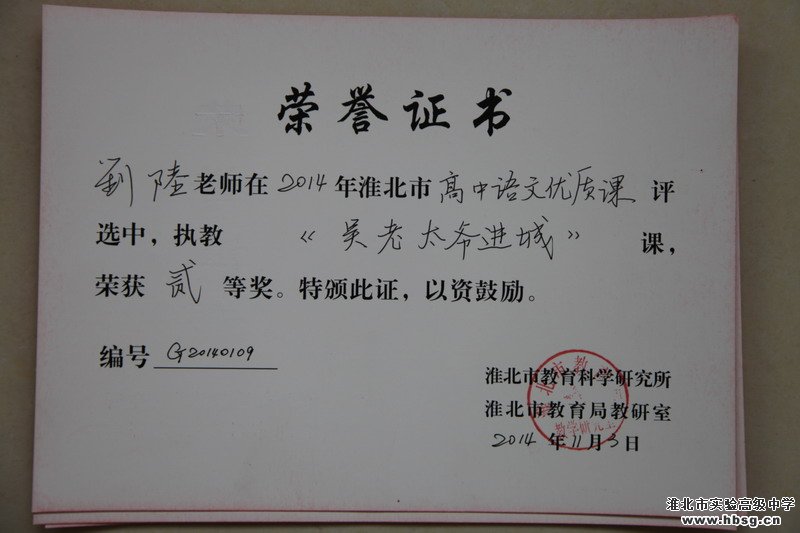 荣誉证书
刘陆老师在2014年淮北市高中语文优质课评
选中，执教《吴老太爷进城》课，
荣获贰等奖。特颁此证，以资鼓励。
编号 G20140109
淮北市教育科学研究所
淮北市教育局教研室
2014年11月3日
淮北市实验高级中学
www.hbsg.cn